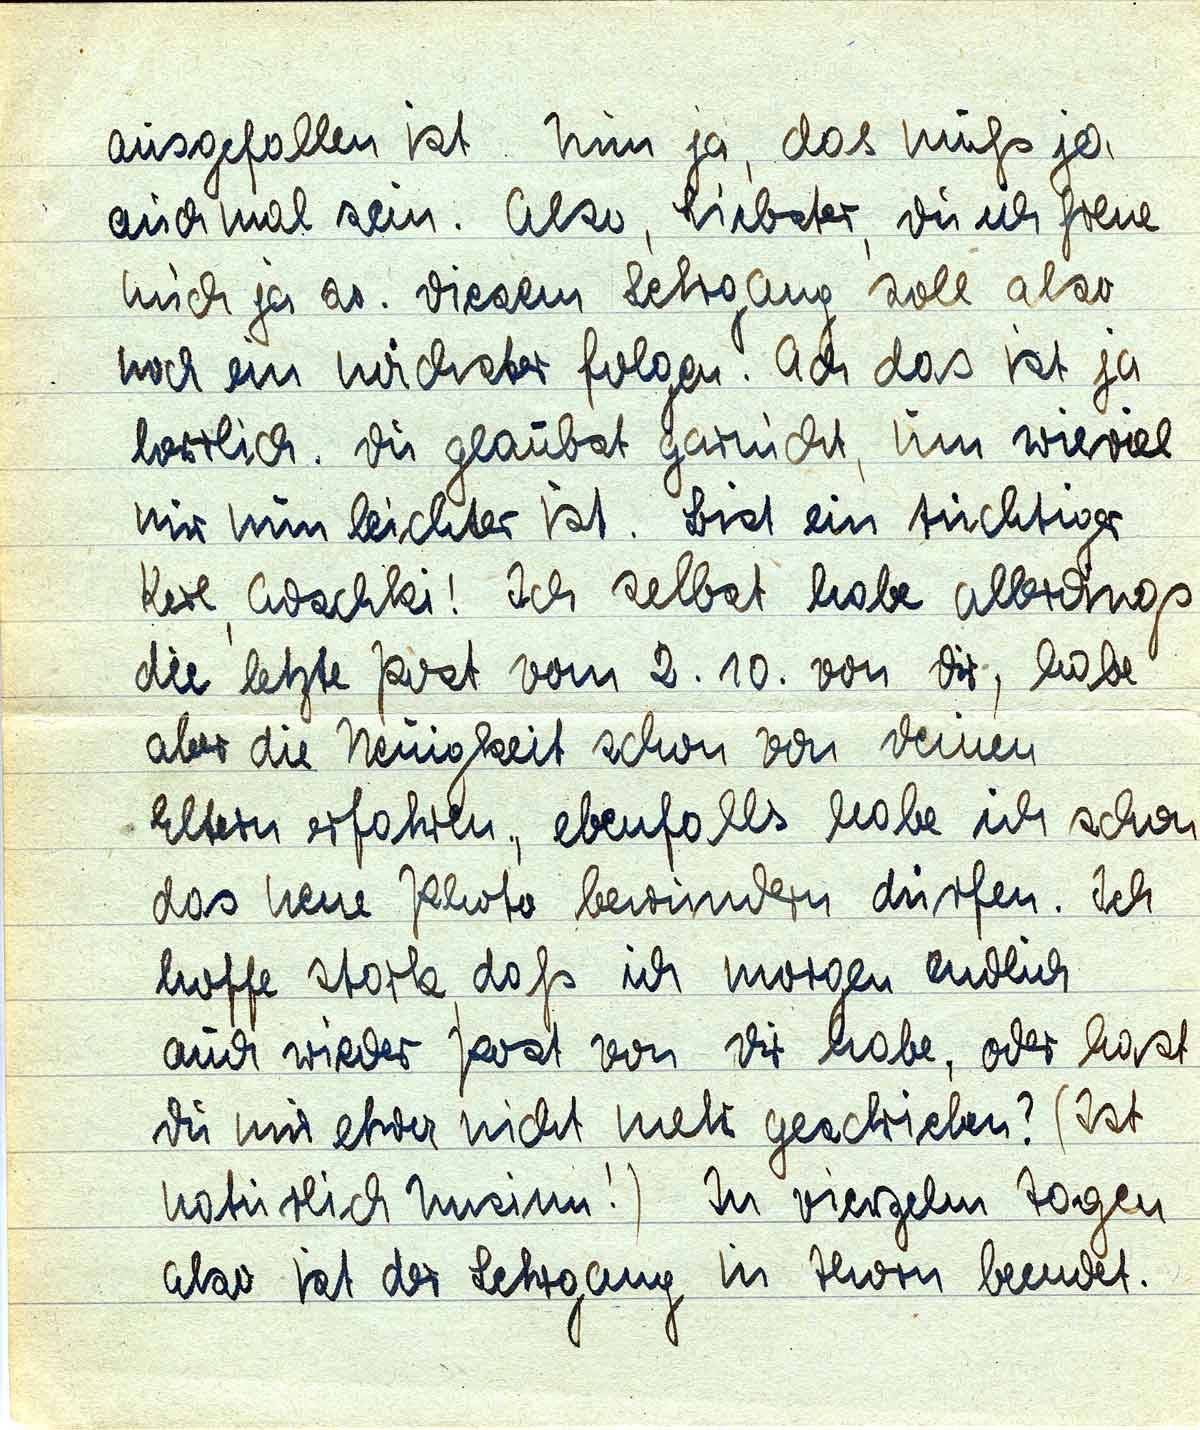 ausgefallen ist. Nun ja, das muß ja
auch mal sein. Also, Liebster, Du ich freue
mich ja so. Diesem Lehrgang soll also
noch ein nächster folgen. Ach das ist ja
herrlich. Du glaubst garnicht, um wieviel
mir nun leichter ist. Bist ein tüchtiger
Kerl, Adschki! Ich selbst habe allerdings
die letzte Post vom 2. 10. von Dir, habe
aber die Neuigkeit schon von Deinen
Eltern erfahren, ebenfalls habe ich schon
das neue Photo bewundern dürfen. Ich
hoffe stark, daß ich morgen endlich
auch wieder Post von Dir habe, oder hast
Du mir etwa nicht mehr geschrieben? (Ist
natürlich Unsinn!) In vierzehn Tagen
also ist der Lehrgang in Thorn beendet.